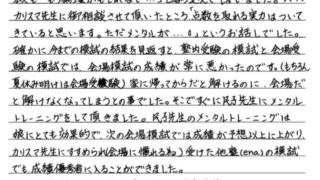 カリスマ先生に御相談させて頂いたところ点数を取れる実力はついて
きていると思います。ただメンタルが…。」というお話しでした。
確かに今までの模試の結果を見返すと、塾内受験の模試と会場受
験の模試では、会場模試の成績が常に悪かったのです。(もちろん
夏休み明けは会場受験) 家に帰ってからだと解けるのに…会場だ
と解けなくなってしまうとの事でした。そこですぐに民子先生にメンタル
トレーニングをして頂きました。民子先生のメンタルトレーニングは
娘にとても効果的で、次の会場模試では成績が予想以上に上がり、
カリスマ先生にすすめられ(会場に慣れる為) 受けた他塾(ena)の模試
でも成績優秀者に入ることができました。